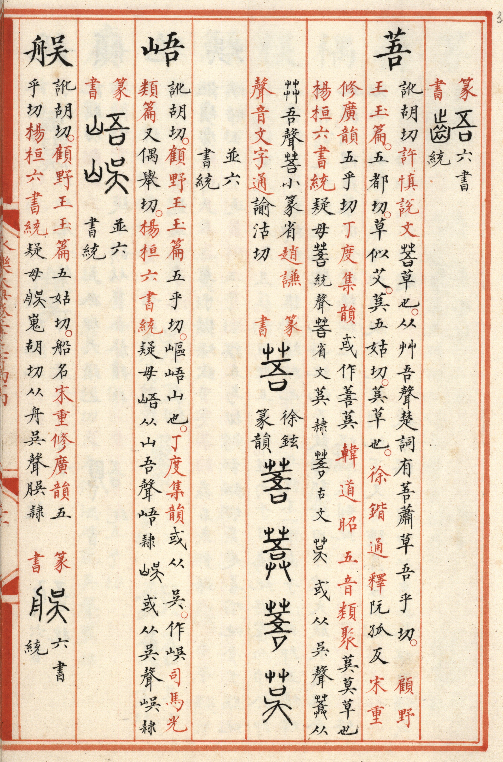 篆書 六書統
䓊
訛胡切許慎說文䓊草也从艸吾聲楚詞有䓊蕭草吾乎切顧野
王玉篇五都切草似艾茣五姑切茣草也徐鍇通釋阮孤反宋重
修廣韻五乎切丁度集韻或作䓊茣韓道昭五音類聚茣茣草也
楊桓六書統疑母䓊統聲䓊省文茣隸䓊古文茣或从吳聲从
艸吾聲䓊小篆省趙謙
聲音文字通諭沽切
篆書 徐鉉篆韻
並六書統
峿
訛胡切顧野王玉篇五乎切嶇峿山也丁度集韻或从吳作㟂司馬光
類篇又偶舉切楊桓六書統疑母峿从山吾聲峿隸㟂或从吳聲㟂隸
篆書 並六書統
䑨
訛胡切顧野王玉篇五姑切船名宋重修廣韻五
乎切楊桓六書統疑母䑨嵬胡切从舟吳聲䑨隸
篆書 六書統